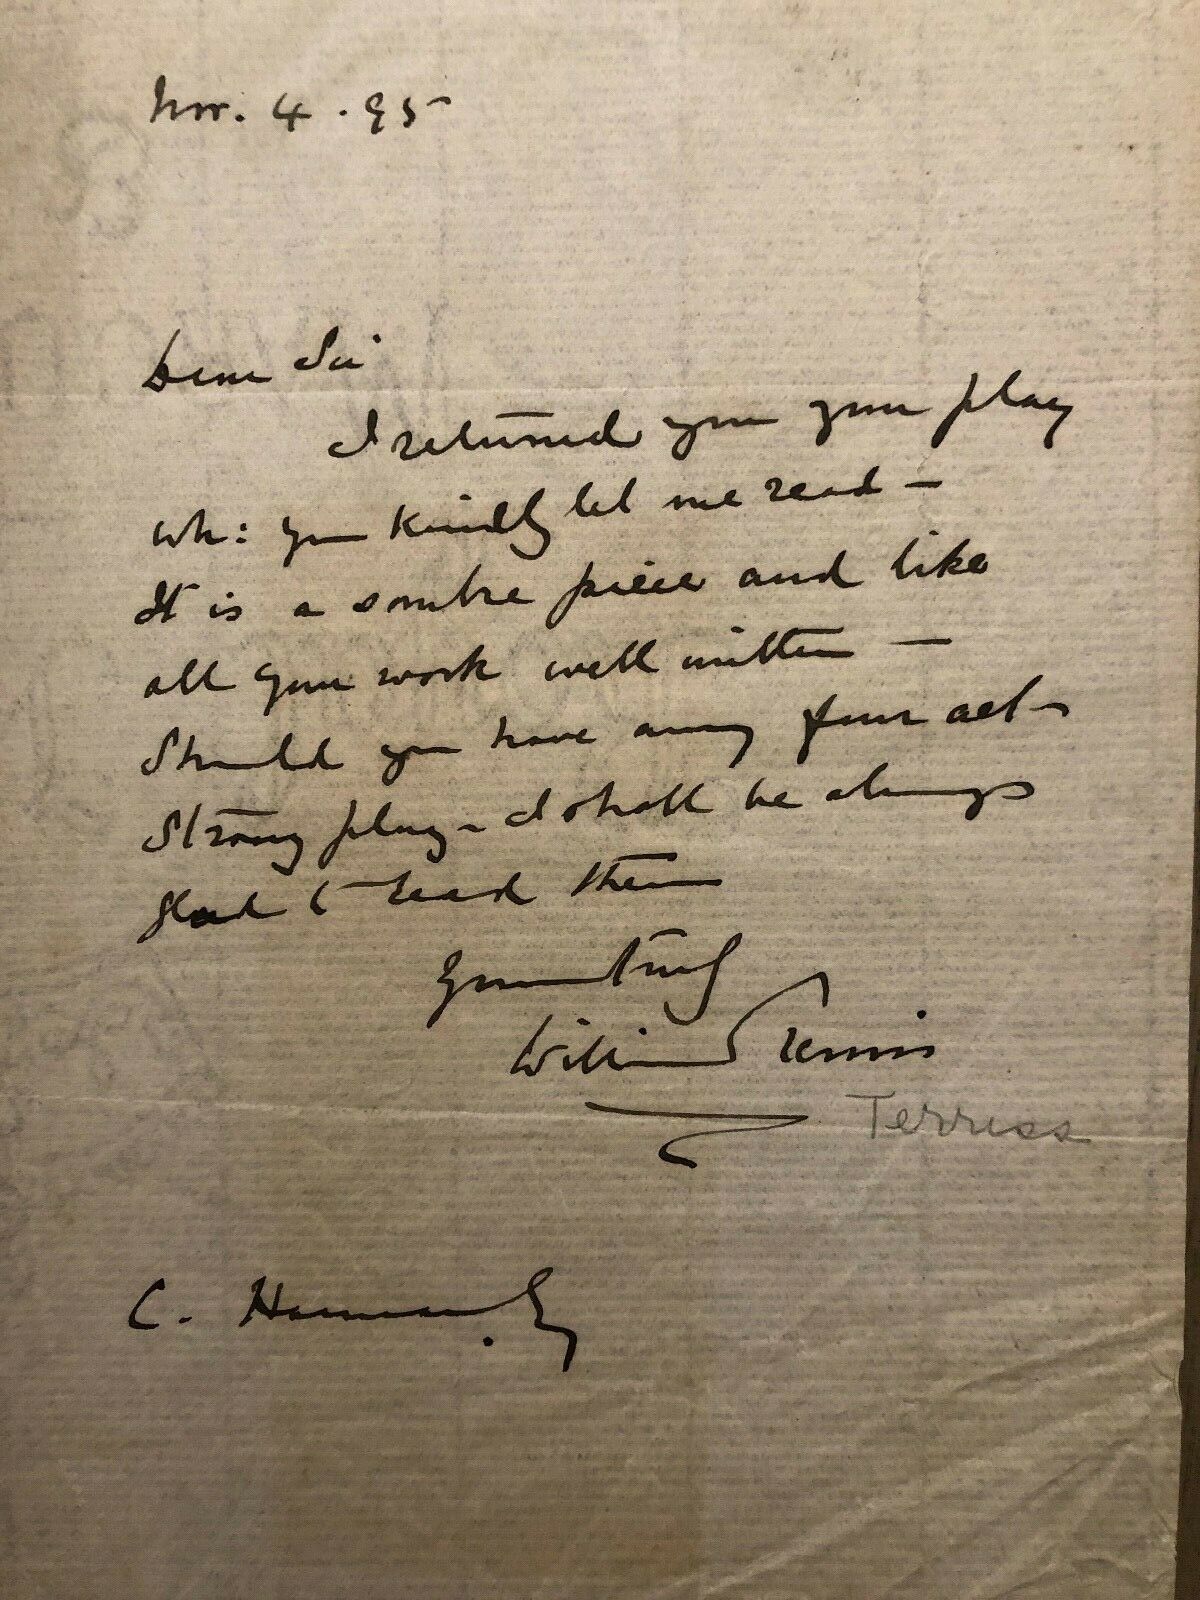 Nov. 4. 95
Dear Sir
I returned you your play
wh: you kindly let me read —
It is a sombre piece and like
all your work well written —
Should you have any four act
Strong plays I shall be always
glad to read them
Yours truly
William Terriss
Terriss
C.